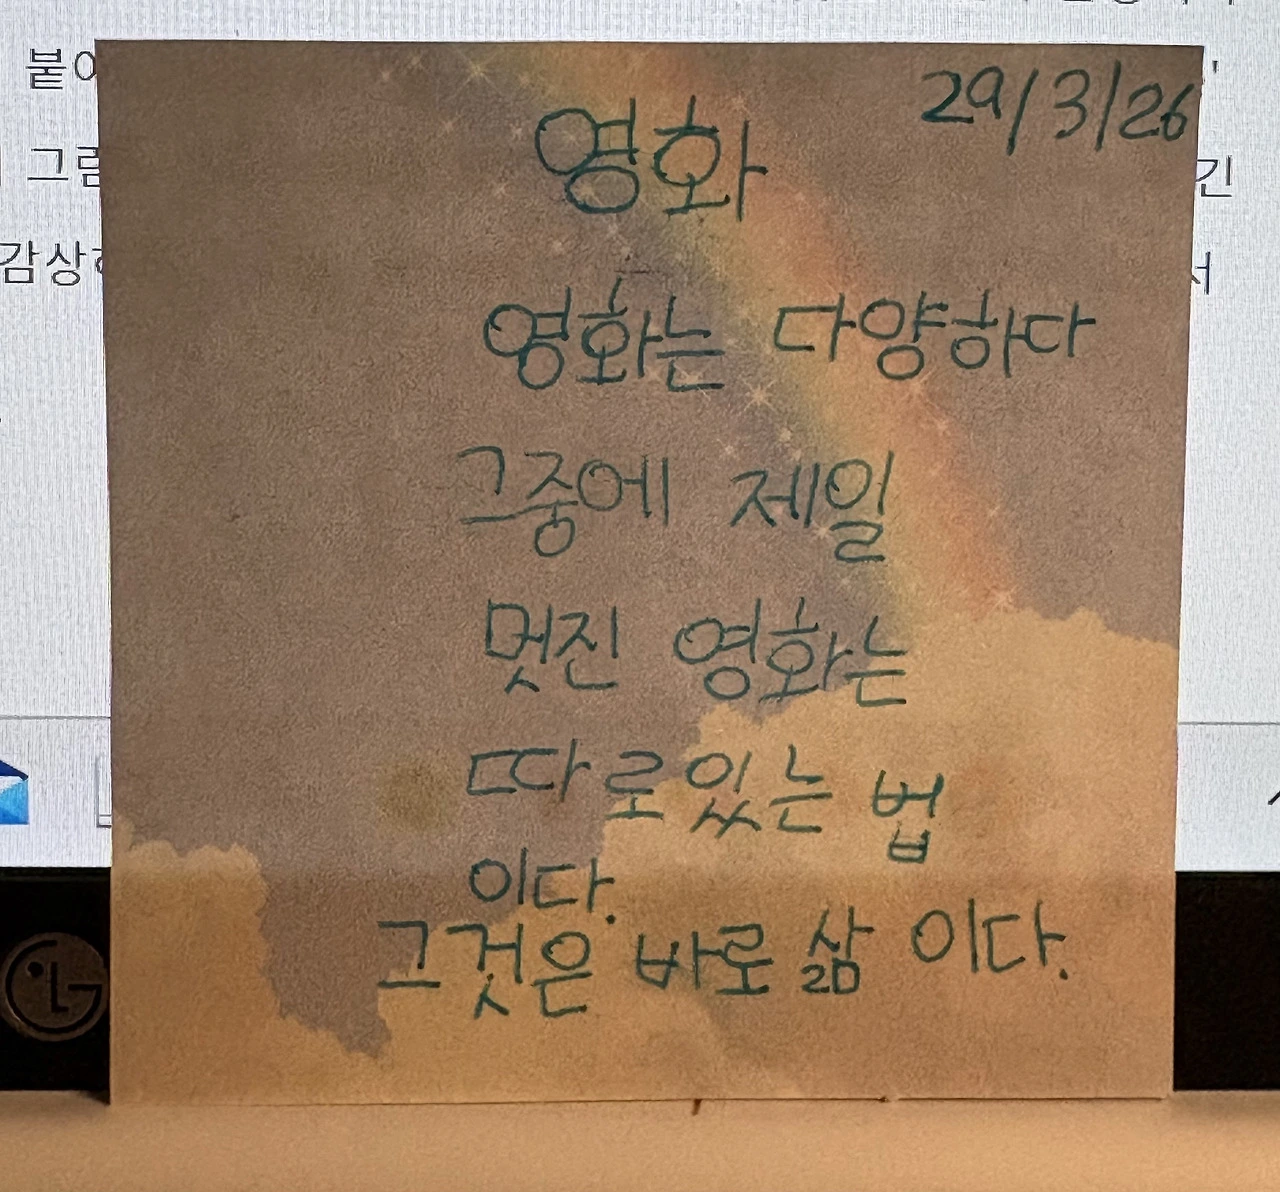 붙어
그림
감상하
긴
서
29/3/26
영화
영화는 다양하다
그중에 제일
멋진 영화는
따로있는 법
이다.
그것은 바로 삶 이다.
LG